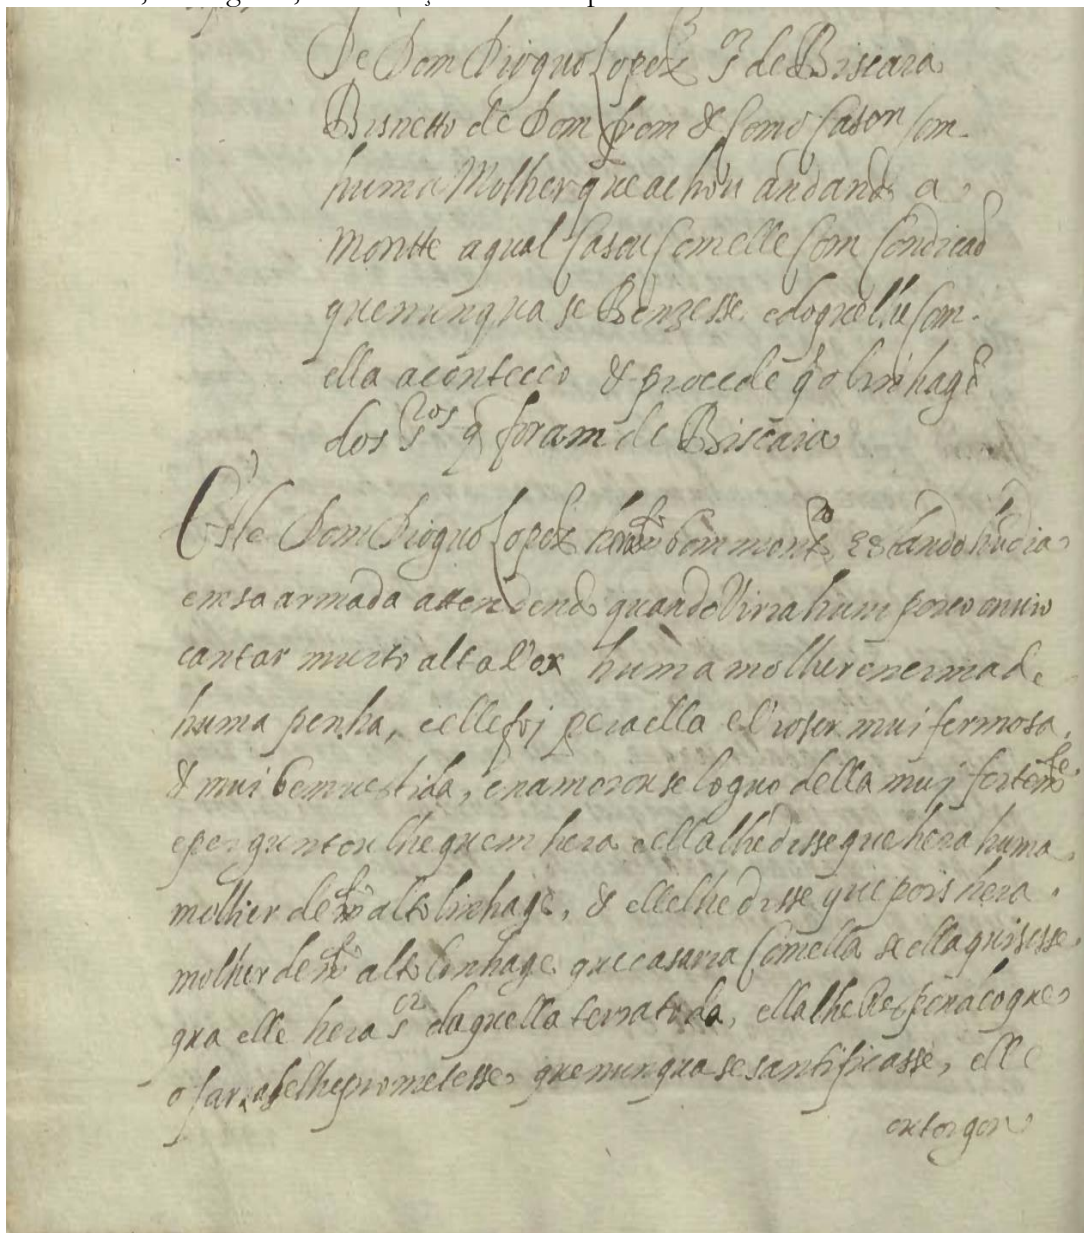 De Dom Dioguo Lopez sor de Biscaia
Bisnetto de Dom from & Como Cason Com
huma Molher que achou andando a
Montte a qual Casou Com elle Com Condicaõ
que nunqua se Benzesse e do que lhe Com
ella aconteceo & procede q̃ o linhagẽ
dos sros q̃ foram de Biscaia
Este Dom Dioguo Lopez hera mto bom monteiro estando hũ dia
em sa armada attendendo quando Viria hum porco ouuio
cantar muito alta Vox huma molher en cima de
huma penha, e elle foj pera ella e Vio ser mui fermosa,
& mui bem uestida, enamorouse loguo della muj fortemte
e perguntou lhe quem hera e ella lhe disse que hera huma
molher de mto alto linhagẽ, & elle lhe disse que pois hera
molher de mto alto linhagẽ que casaria Com ella se ella quisesse
qua elle hera sor daquella terra toda, ella lhe Respondeo que
o faria se lhe prometesse que nunqua se santificasse, elle
outorgou